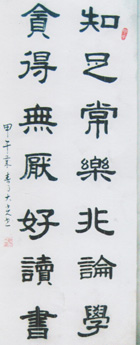 知足常樂非論學
貪得無厭好讀書
甲午